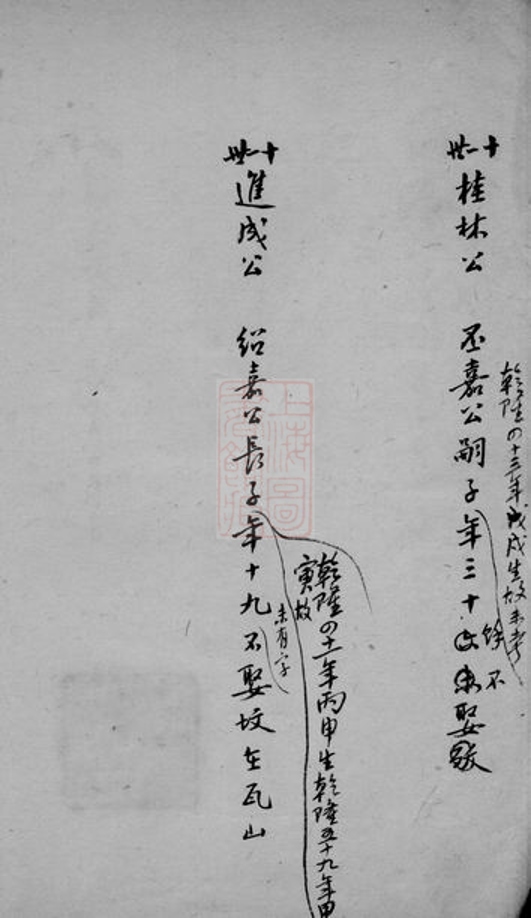 十一世桂林公　丕嘉公嗣子年三十餘不娶歿
乾隆四十三年戊戌生故未考
十一世進成公　紹嘉公長子年十九不娶坟在瓦山
乾隆四十一年丙申生乾隆五十九年甲
寅故
未有字
上海圖